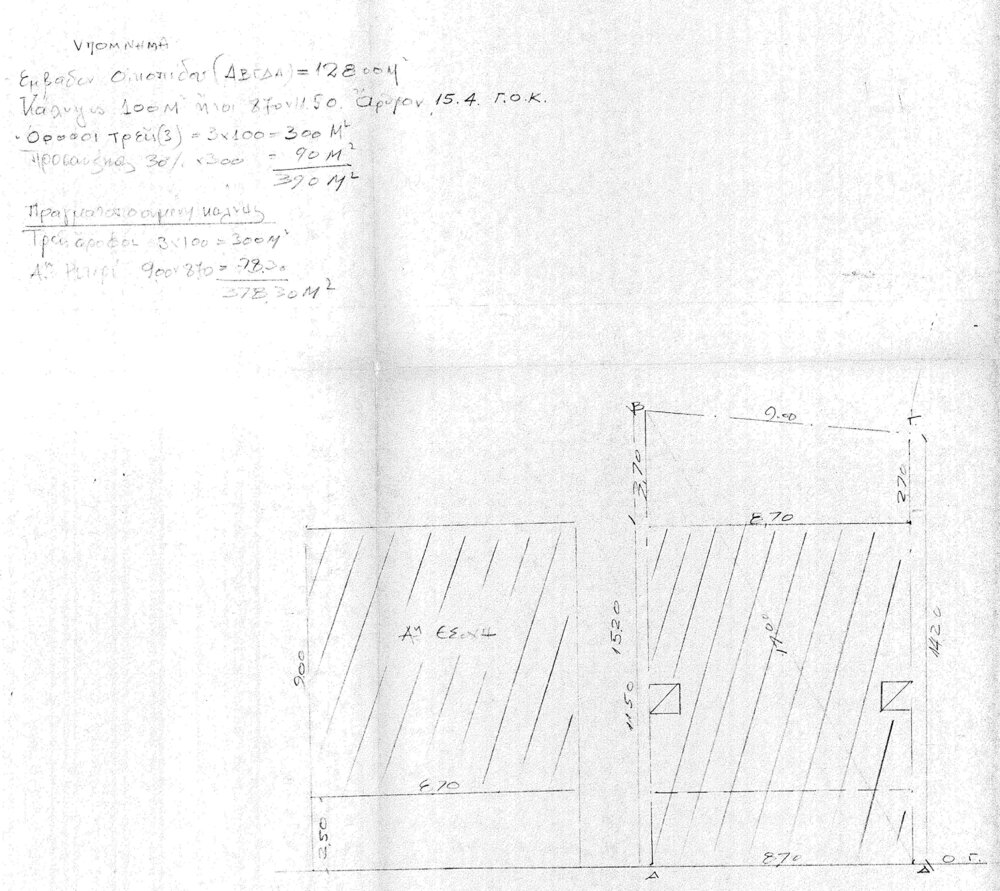 ΥΠΟΜΝΗΜΑ
Εμβαδον Οικοπεδου (ΑΒΓΔΑ) = 128.00 Μ²
Κάλυψις 100 Μ² ήτοι 8.70 x 11.50. Άρθρον 15.4. Γ.Ο.Κ.
Όροφοι τρείς (3) = 3x100 = 300 Μ²
Προσαυξησις 30% x300 = 90 Μ²
390 Μ²
Πραγματοποιουμένη κάλυψις
Τρείς όροφοι 3x100 = 300 Μ²
9.00x8.70 = 78.30
378.30 Μ²
Β
9.00
Γ
3.70
2.70
8.70
Αη ΕΣΟΧΗ
9.00
15.20
11.50
14.20
8.70
2.50
8.70
Α
Δ
Ο.Γ.